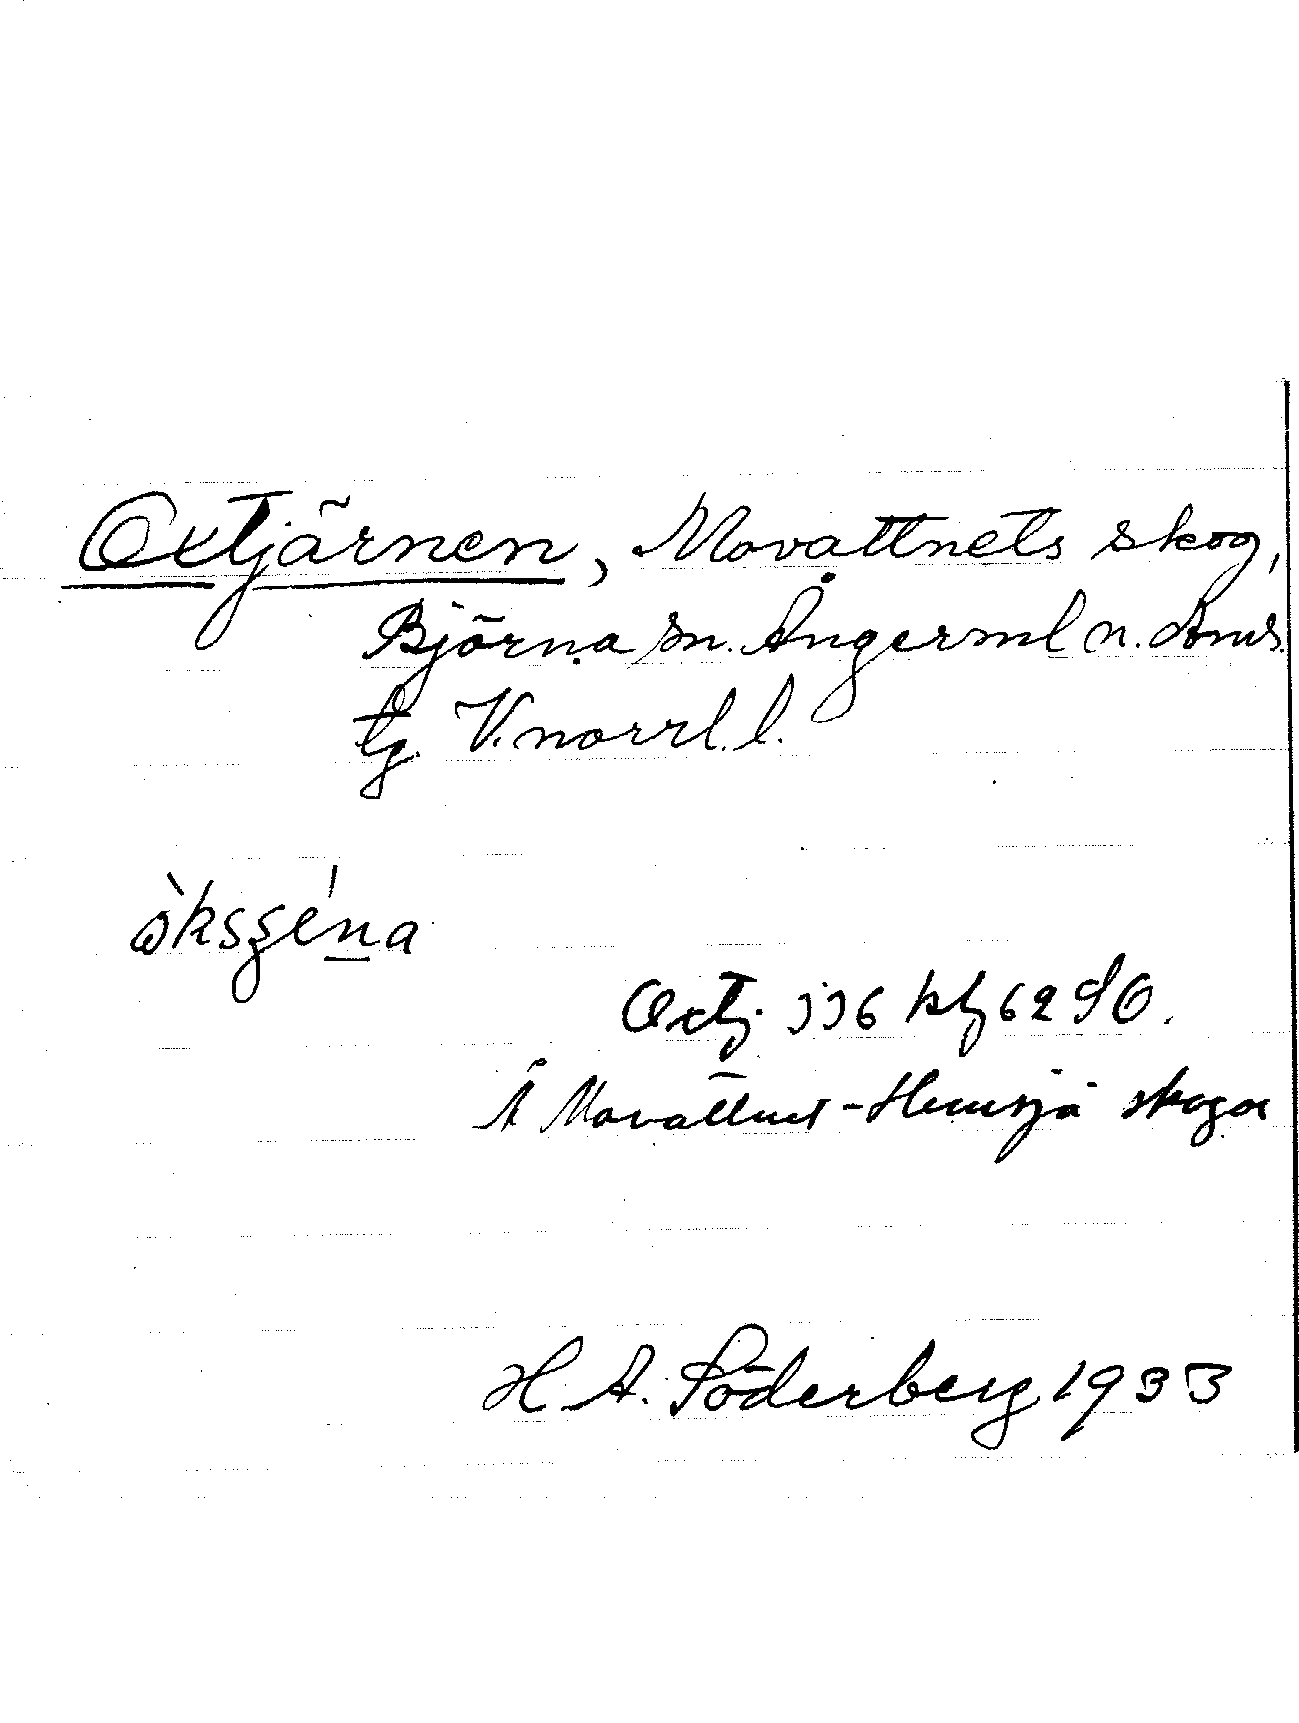 Oxtjärnen, Movattnets skog,
Björna sn. Ångerml n. doms.
tg. V.norrl. l.
Oxtj. 336 kbf 62 SO.
Å Movattnet-Hemsjö skogar
H. A. Söderberg 1933